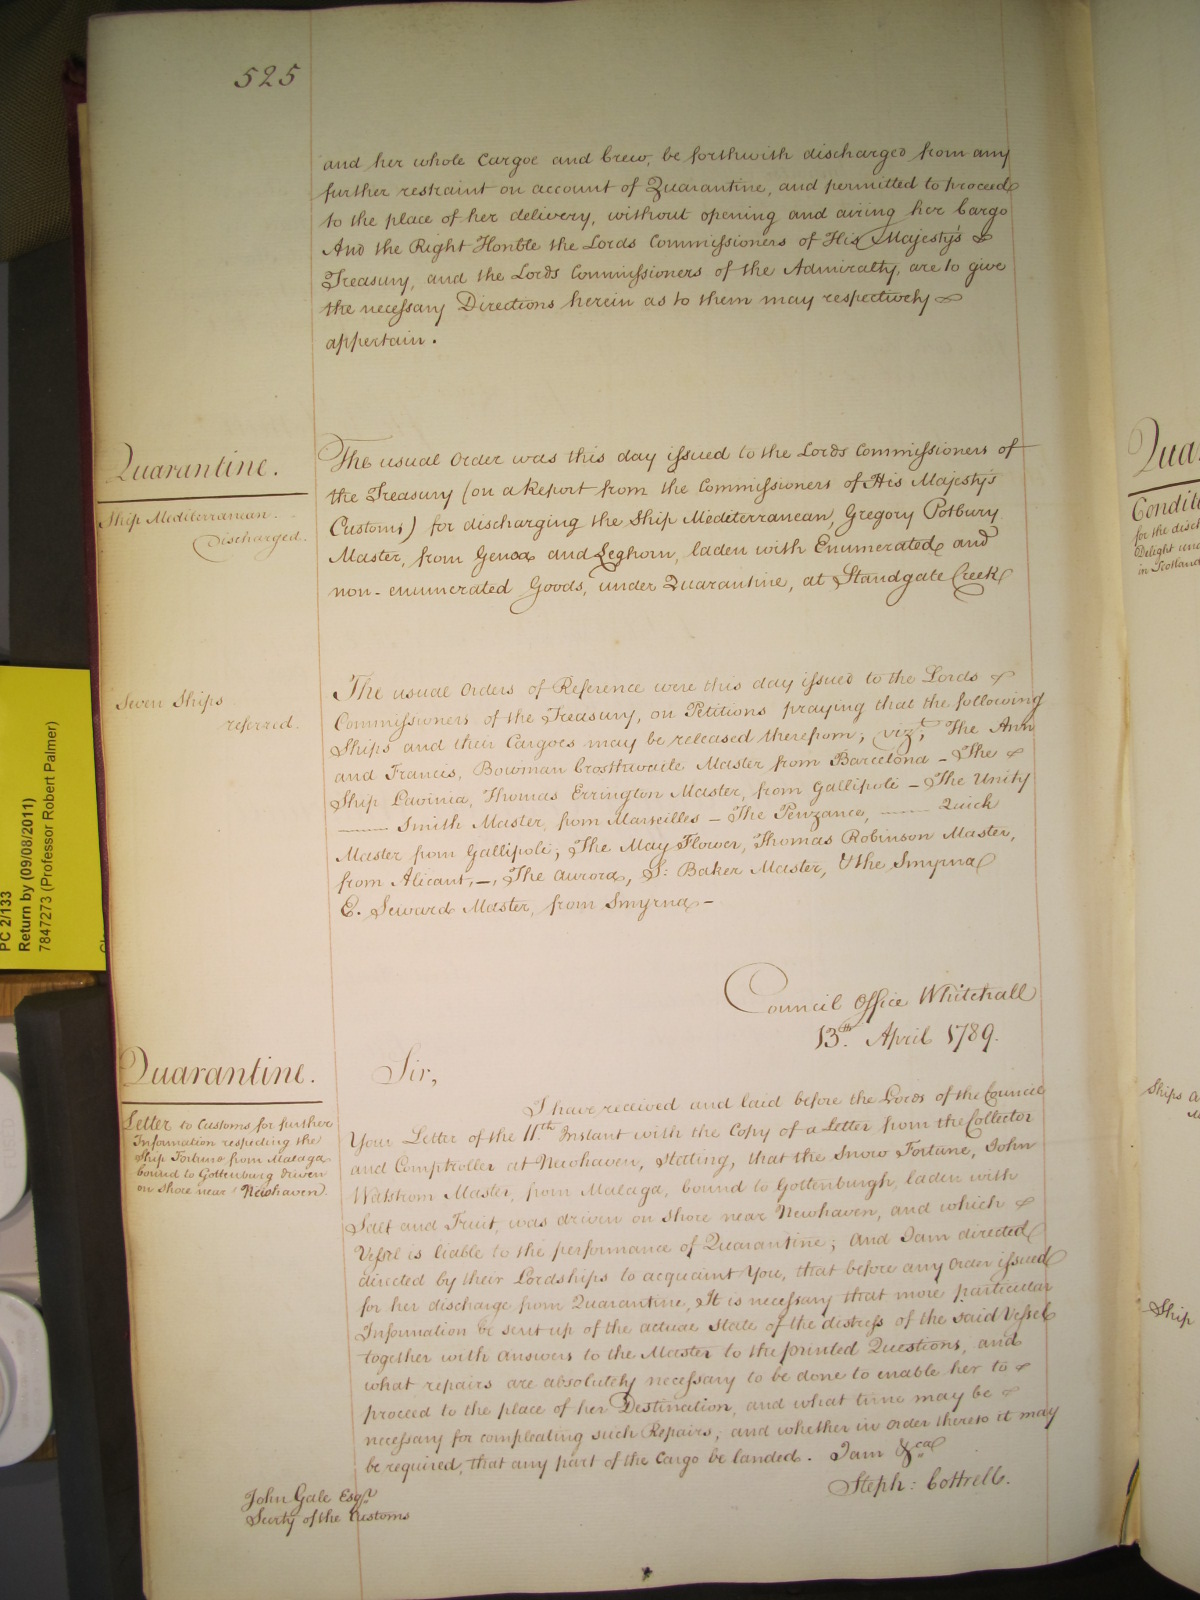 525
and her whole Cargoe and Crew, be forthwith discharged from any
further restraint on account of Quarantine, and permitted to proceed
to the place of her delivery, without opening and airing her Cargo
And the Right Honble the Lords Commissioners of His Majesty's
Treasury, and the Lords Commissioners of the Admiralty, are to give
the necessary Directions herein as to them may respectively
appertain.
Quarantine.
Ship Mediterranean.
Discharged.
The usual Order was this day issued to the Lords Commissioners of
the Treasury (on a Report from the Commissioners of His Majesty's
Customs) for discharging the Ship Mediterranean, Gregory Potbury
Master, from Genoa and Leghorn, laden with Enumerated and
non-enumerated Goods, under Quarantine, at Standgate Creek
Seven Ships
referred.
The usual Orders of Reference were this day issued to the Lords
Commissioners of the Treasury, on Petitions praying that the following
Ships and their Cargoes may be released therefrom; vizt, The Ann
and Francis, Bowman Crosthwaite Master from Barcelona - The
Ship Lavinia, Thomas Errington Master, from Gallipoli - The Unity
—— Smith Master, from Marseilles - The Penzance, —— Quick
Master from Gallipoli; The May Flower, Thomas Robinson Master,
from Alicant, -, The Aurora, S: Baker Master, & the Smyrna
E. Seward Master, from Smyrna -
Council Office Whitehall
13th. April 1789.
Quarantine.
Letter to Customs for further
Information respecting the
Ship Fortune from Malaga
bound to Gottenburg driven
on shore near Newhaven.
Sir,
I have received and laid before the Lords of the Council
Your Letter of the 11th Instant with the Copy of a Letter from the Collector
and Comptroller at Newhaven, stating, that the Snow Fortune, John
Walstrom Master, from Malaga, bound to Gottenburgh, laden with
Salt and Fruit, was driven on Shore near Newhaven, and which
Vessel is liable to the performance of Quarantine; and I am directed
directed by their Lordships to acquaint You, that before any Order issued
for her discharge from Quarantine, It is necessary that more particular
Information be sent up of the actual State of the distress of the said Vessel
together with answers to the Master to the printed Questions, and
what repairs are absolutely necessary to be done to enable her to
proceed to the place of her Destination, and what time may be
necessary for compleating such Repairs, and whether in order thereto it may
be required, that any part of the Cargo be landed. I am &ca.
Steph: Cottrell.
John Gale Esqr
Secrty of the Customs
PC 2/133
Return by (09/08/2011)
7847273 (Professor Robert Palmer)
for the disch
Delight
in Scotland
Ship